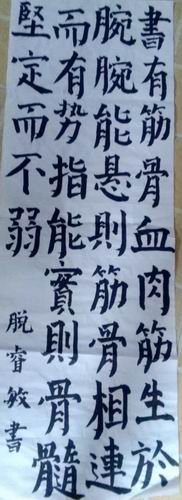 書有筋骨血肉筋生於
腕腕能悬則筋骨相連
而有势指能實則骨髓
堅定而不弱
脱睿敏書